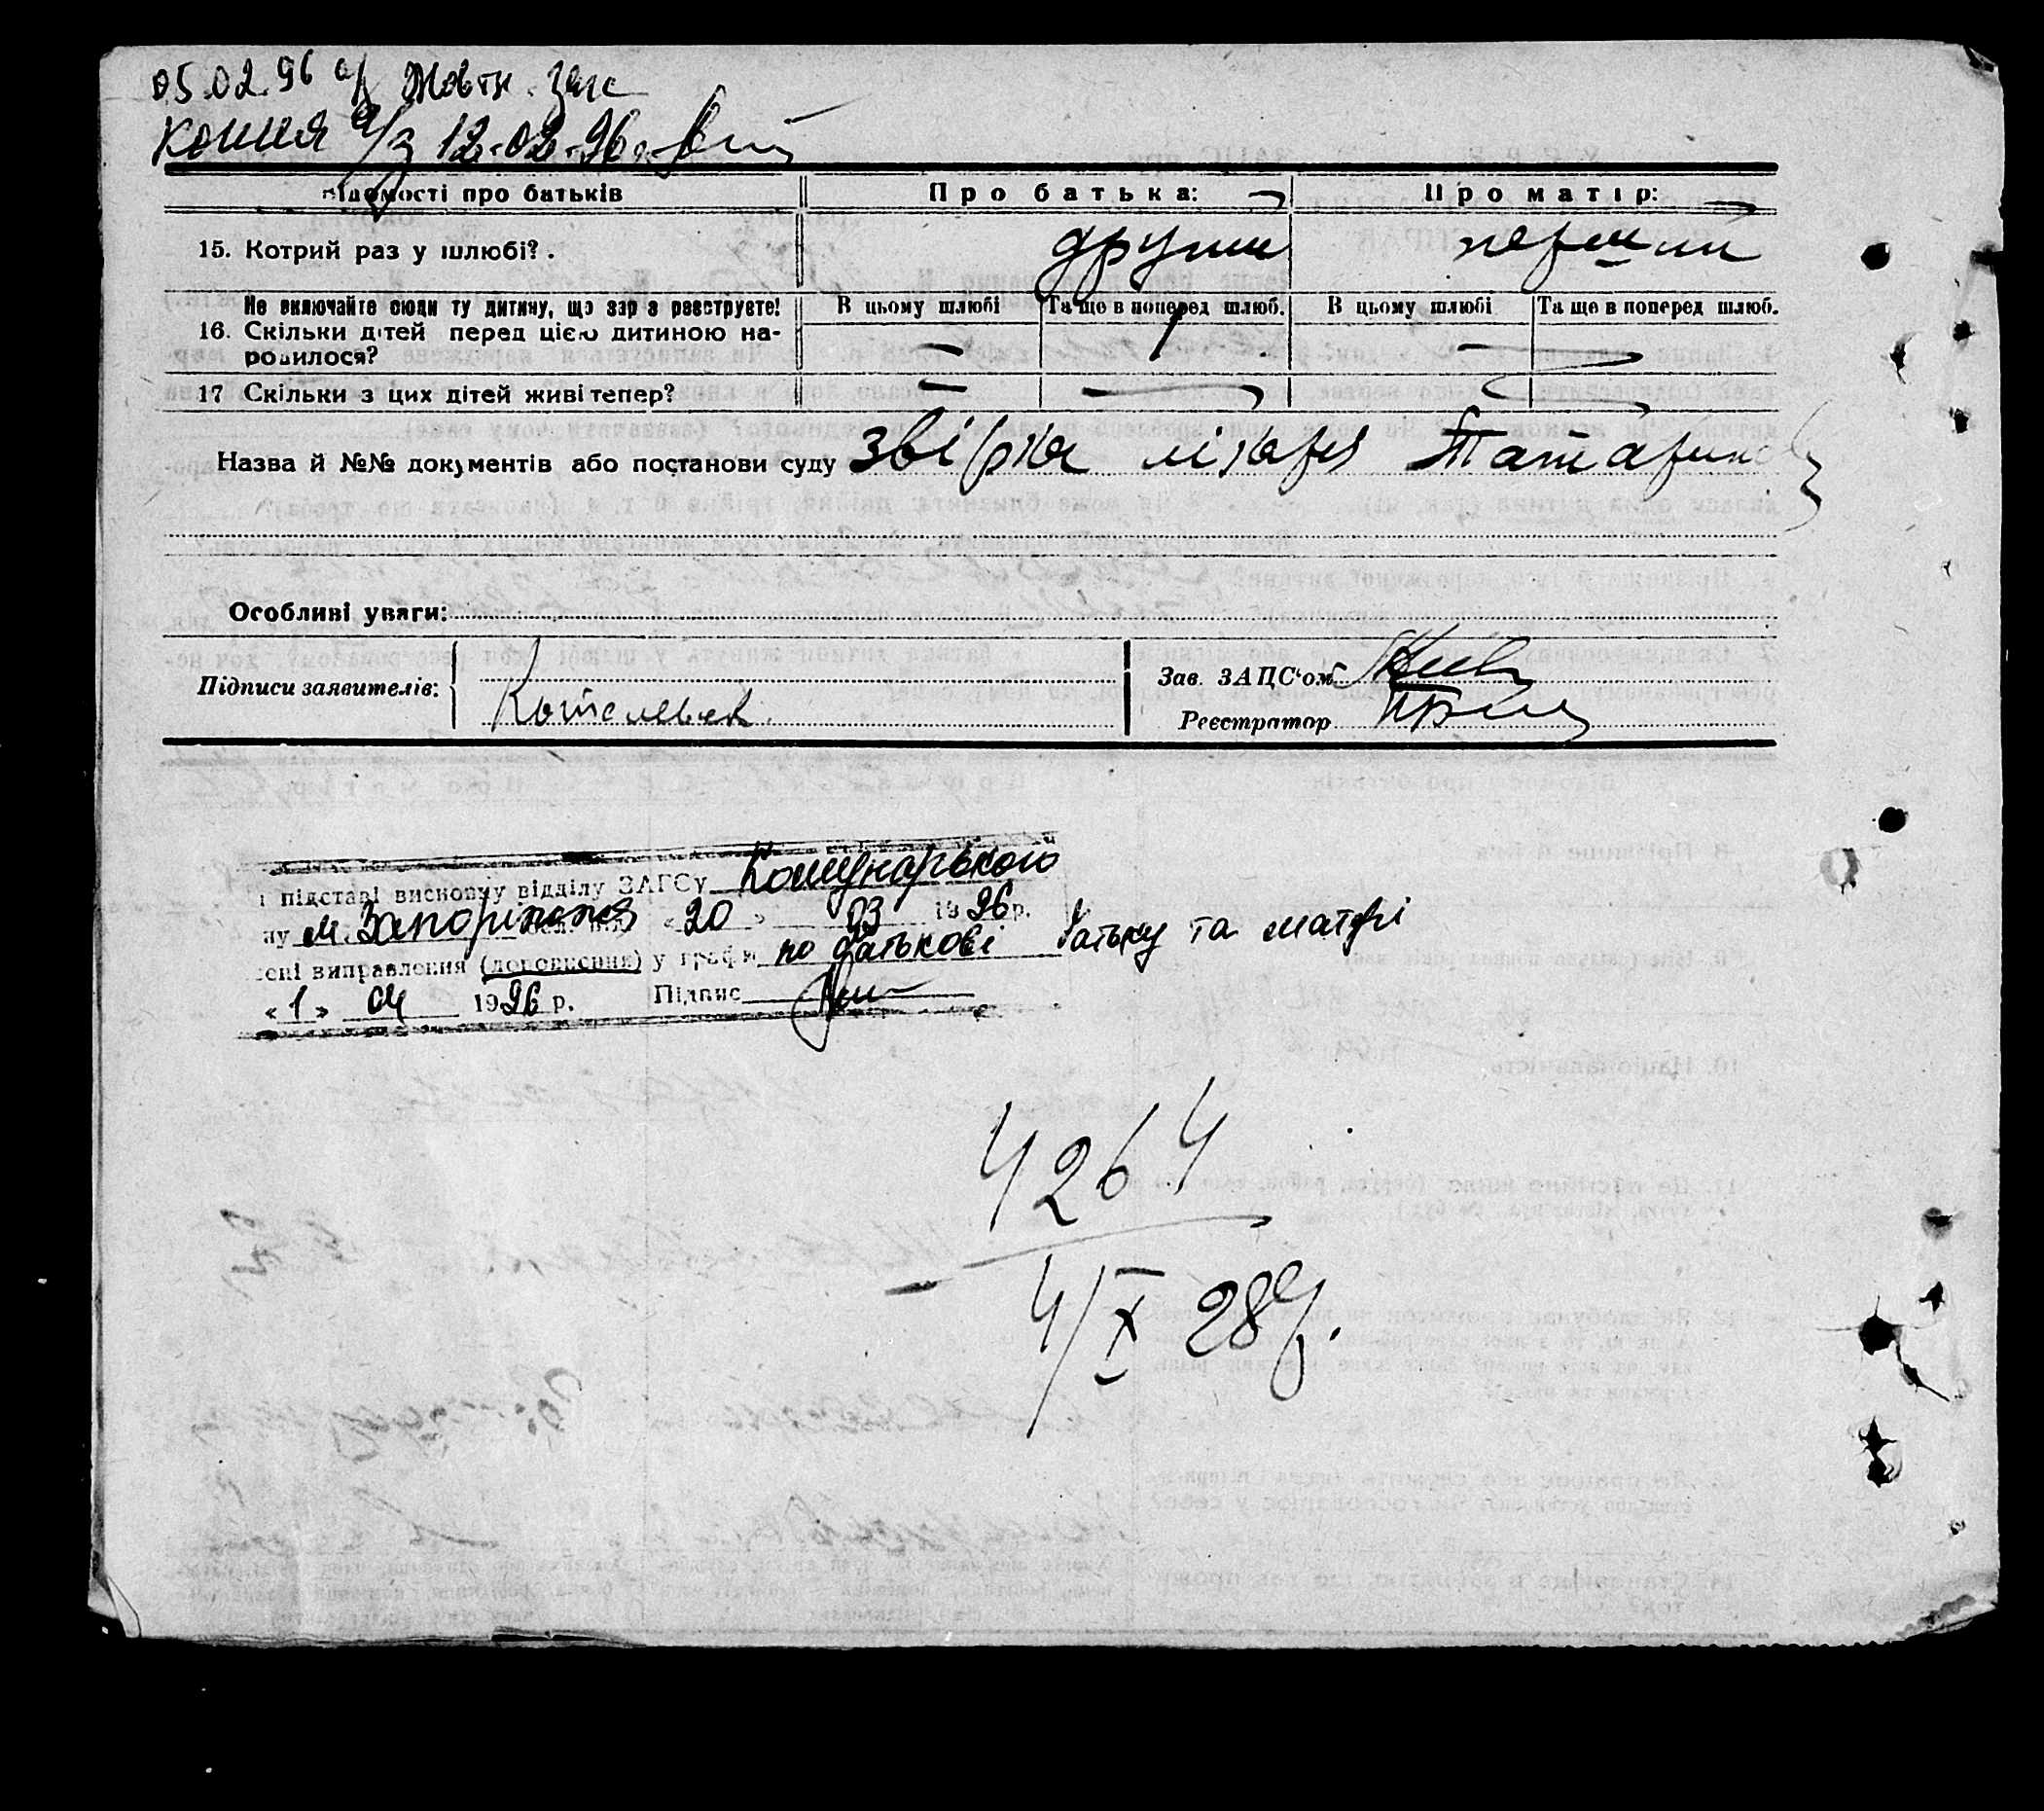 05.02.96 Жовтн. загс
копия 12-02-96
Відомості про батьків
Про батька:
Про матір:
15. Котрий раз у шлюбі?
другий
перший
Не включайте сюди ту дитину, що зараз реєструєте!
16. Скільки дітей перед цією дитиною на-
родилося?
В цьому шлюбі
Та ще в поперед шлюб.
В цьому шлюбі
Та ще в поперед шлюб.
— 1 — —
17 Скільки з цих дітей живі тепер?
— — — —
Назва й №№ документів або постанови суду звірка лікаря
Особливі уваги:
Підписи заявителів:
Зав. ЗАПС'ом
Реєстратор
підставі висновку відділу ЗАГСу Комунарського
ну м. Запоріжжя «20» 03 1996 р.
ені виправлення (доповнення) у графи по батькові батьку та матері
«1» 04 1996 р. Підпис
4264
4/X 28р.